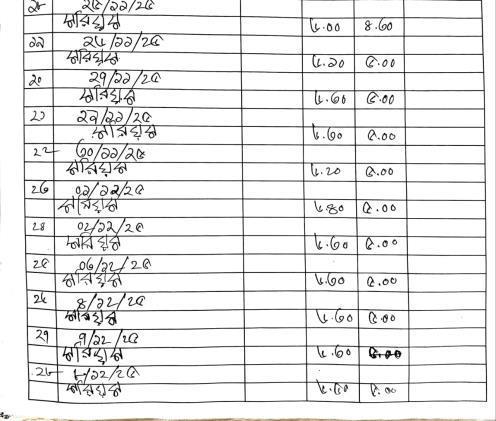 ২৫/১১/২৫
মরিয়ম ৬.০০ ৪.৩০
১৯ ২৬/১১/২৫
মরিয়ম ৬.২০ ৫.০০
২০ ২৭/১১/২৫
মরিয়ম ৬.৩০ ৫.০০
২১ ২৯/১১/২৫
মরিয়ম ৬.৩০ ৫.০০
২২ ৩০/১১/২৫
মরিয়ম ৬.২০ ৫.০০
২৩ ০১/১২/২৫
মরিয়ম ৬.৪০ ৫.০০
২৪ ০২/১২/২৫
মরিয়ম ৬.৩০ ৫.০০
২৫ ০৩/১২/২৫
মরিয়ম ৬.৩০ ৫.০০
২৬ ৪/১২/২৫
মরিয়ম ৬.৩০ ৫.০০
২৭ ৭/১২/২৫
মরিয়ম ৬.৩০ ৫.০০
২৮ ৮/১২/২৫
মরিয়ম ৫.০০